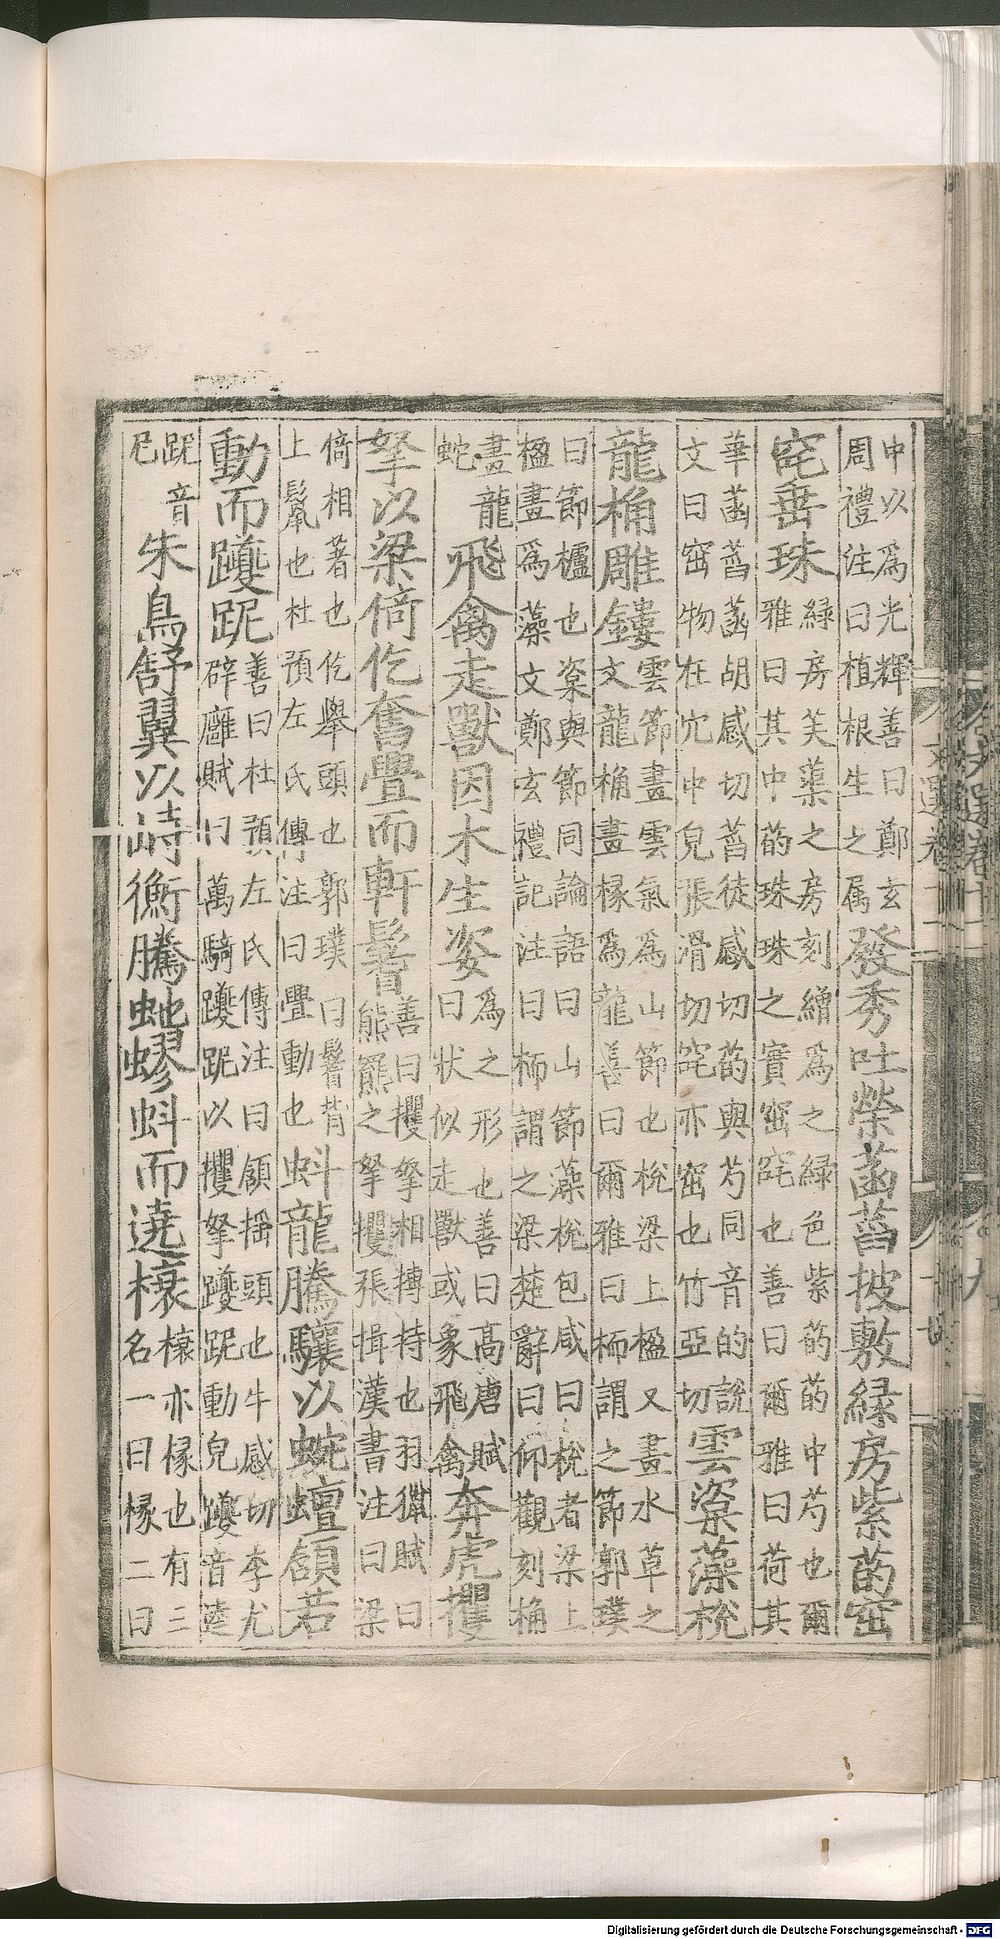 中以爲光輝善曰鄭玄
周禮注曰植根生之属
發秀吐榮菡萏披敷緑房紫菂窋
窀垂珠
緑房芙蕖之房刻繒爲之緑色紫菂菂中芍也爾
雅曰其中菂珠珠之實窋窀也善曰爾雅曰荷其
華菡萏菡胡感切萏徒感切菂與芍同音的說
文曰窋物在穴中皃張滑切窀亦窋也竹亞切
雲楶藻梲
龍桷雕鏤
雲節畫雲氣爲山節也梲梁上楹又畫水草之
文龍桷畫椽爲龍善曰爾雅曰栭謂之節郭璞
曰節櫨也楶與節同論語曰山節藻梲包咸曰梲者梁上
楹畫爲藻文鄭玄禮記注曰栭謂之梁楚辭曰仰觀刻桷
畫龍
蛇
飛禽走獸因木生姿
爲之形也善曰高唐賦
曰狀似走獸或象飛禽
奔虎攫
拏以梁倚仡奮舋而軒鬐
善曰攫拏相搏持也羽獵賦曰
熊羆之拏攫張揖漢書注曰梁
倚相著也仡舉頭也郭璞曰鬐背
上鬣也杜預左氏傳注曰舋動也
虯龍騰驤以蜿蟺頷若
動而躨跜
善曰杜預左氏傳注曰頷揺頭也牛感切李尤
辟廱賦曰萬騎躨跜以攫拏躨跜動皃躨音逵
跜音
尼
朱鳥舒翼以峙衡騰虵蟉虯而遶榱
榱亦椽也有三
名一曰椽二曰
文選卷十一
九
Digitalisierung gefördert durch die Deutsche Forschungsgemeinschaft - DFG